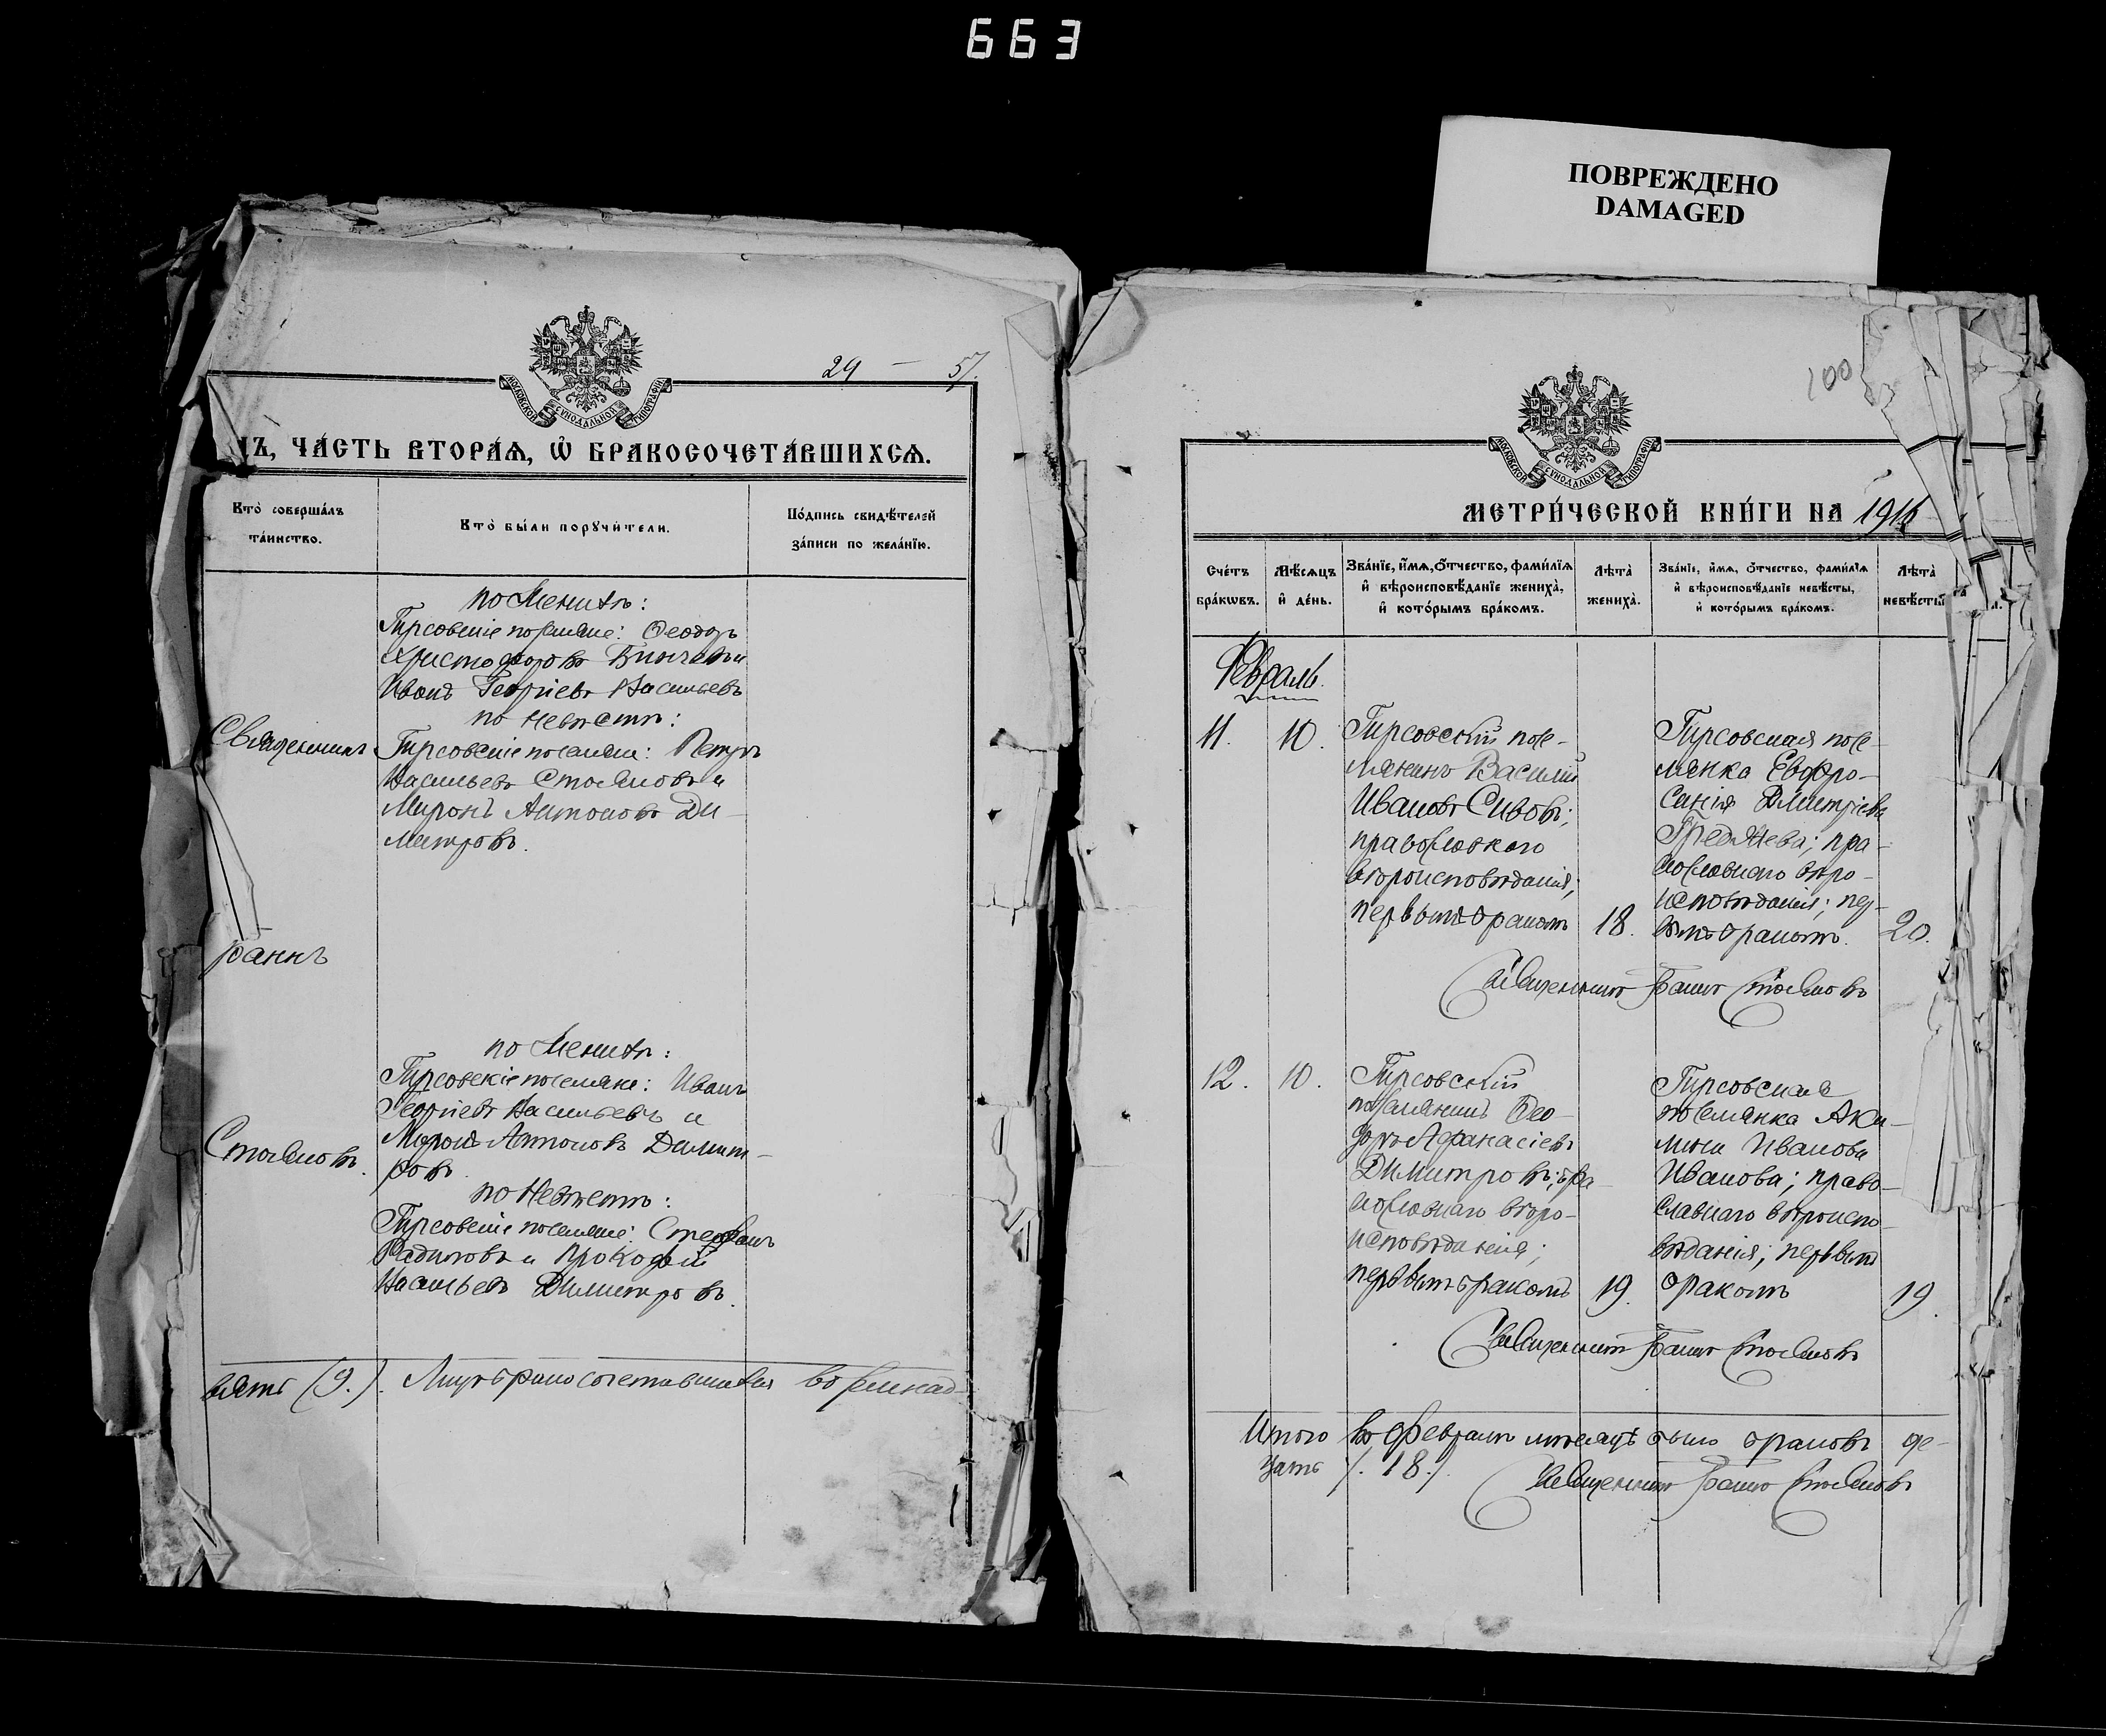 663
ПОВРЕЖДЕНО
DAMAGED
29 — 57.
МОСКОВСКОЙ СѴНОДАЛЬНОЙ ТИПОГРАФІИ
Ъ, ЧА́СТЬ ВТОРА́Я, Ѽ БРАКОСОЧЕТА́ВШИХСЯ.
Кто̀ соверша́лъ
та́инство.
Кто̀ бы́ли порꙋчи́тели.
По́дпись свидѣ́телей
за́писи по жела́нїю.
по Женихѣ:
Гирсовскіе поселяне: Ѳеодоръ
Христофоровъ и
Иванъ Георгіевъ Васильевъ
по Невѣстѣ:
Священникъ
Гирсовскіе поселяне: Петръ
Васильевъ Стояновъ и
Миронъ Антоновъ Ди-
митровъ.
Іоаннъ
по Женихѣ:
Гирсовскіе поселяне: Иванъ
Георгіевъ Васильевъ и
Миронъ Антоновъ Димит-
ровъ.
Стояновъ.
по Невѣстѣ:
Гирсовскіе поселяне: Стефанъ
Радиловъ и Прокофій
Васильевъ Димитровъ.
вять (9.). Лицъ бракосочетавшихся восемнад-
100
МОСКОВСКОЙ СѴНОДАЛЬНОЙ ТИПОГРАФІИ
МЕТРИ́ЧЕСКОЙ КНИ́ГИ НА 1916
Сче́тъ
бра́кωвъ.
Мѣ́сяцъ
и҆ де́нь.
Зва́нїе, и҆́мя, ѻ҆́тчество, фами́лїя
и҆ вѣроисповѣ́данїе жениха̀,
и҆ кото́рымъ бра́комъ.
Лѣ́та
жениха̀.
Зва́нїе, и҆́мя, ѻ҆́тчество, фами́лїя
и҆ вѣроисповѣ́данїе невѣ́сты,
и҆ кото́рымъ бра́комъ.
Лѣ́та
невѣ́сты
Февраль.
11. 10.
Гирсовскій посе-
лянинъ Василій
Ивановъ Сивовъ;
православнаго
вѣроисповѣданія;
первымъ бракомъ
18.
Гирсовская посе-
лянка Евфро-
синія Димитріева
православнаго вѣро-
исповѣданія; пер-
вымъ бракомъ.
20.
Священникъ Іоаннъ Стояновъ
12. 10.
Гирсовскій
поселянинъ Ѳео-
доръ Афанасіевъ
Димитровъ; пра-
вославнаго вѣро-
исповѣданія;
первымъ бракомъ
19.
Гирсовская
поселянка Аки-
лина Иванова
Иванова; право-
славнаго вѣроиспо-
вѣданія; первымъ
бракомъ
19.
Священникъ Іоаннъ Стояновъ
Итого въ Февралѣ мѣсяцѣ было браковъ де-
цать /.18./.
Священникъ Іоаннъ Стояновъ